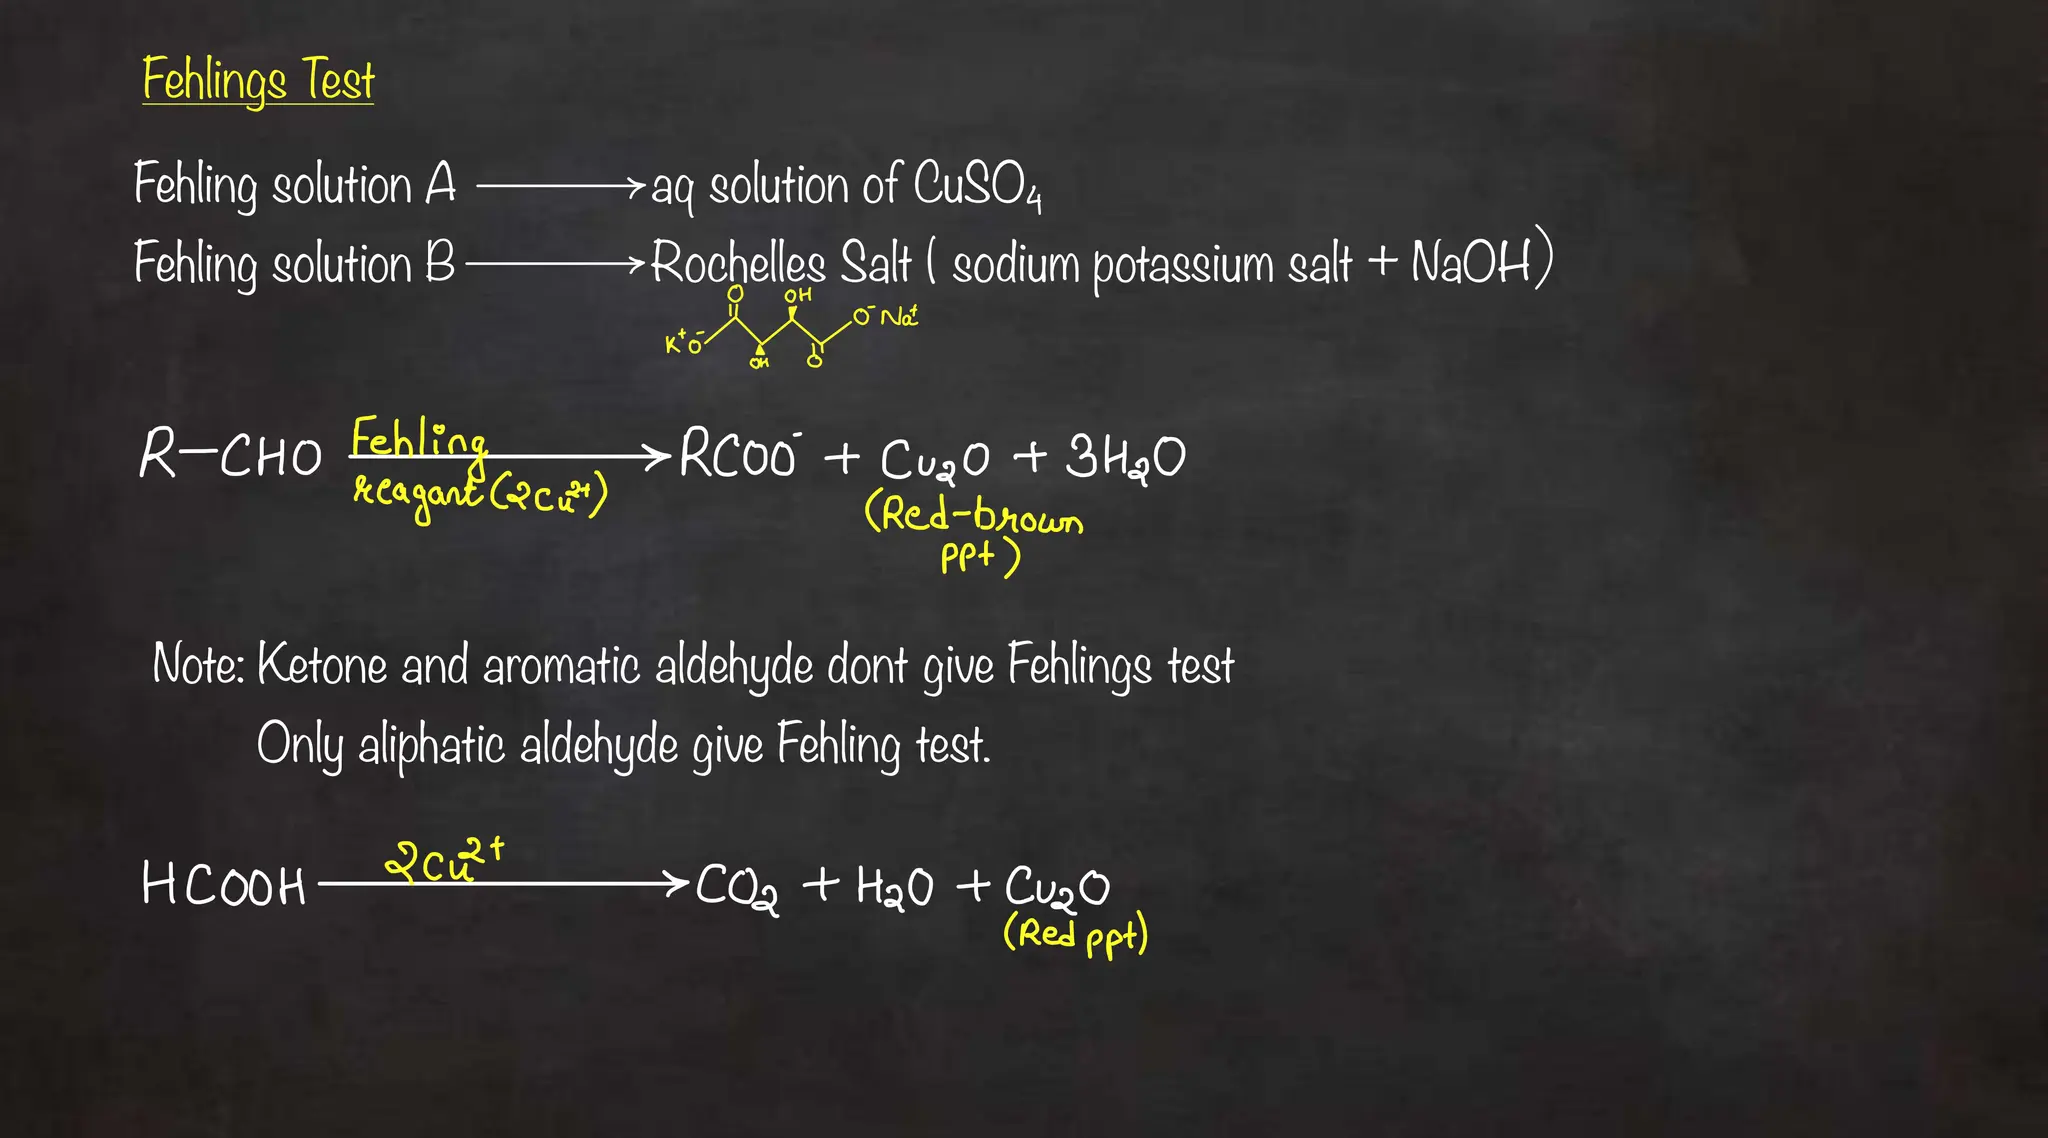 Fehlings Test
Fehling solution A ⟶ aq solution of CuSO₄
Fehling solution B ⟶ Rochelles Salt ( sodium potassium salt + NaOH )
O OH O⁻ Na⁺
K⁺ O⁻ OH O
R–CHO Fehling reagant (2Cu²⁺) ⟶ RCOO⁻ + Cu₂O + 3H₂O
(Red-brown
ppt)
Note: Ketone and aromatic aldehyde dont give Fehlings test
Only aliphatic aldehyde give Fehling test.
HCOOH 2Cu²⁺ ⟶ CO₂ + H₂O + Cu₂O
(Red ppt)